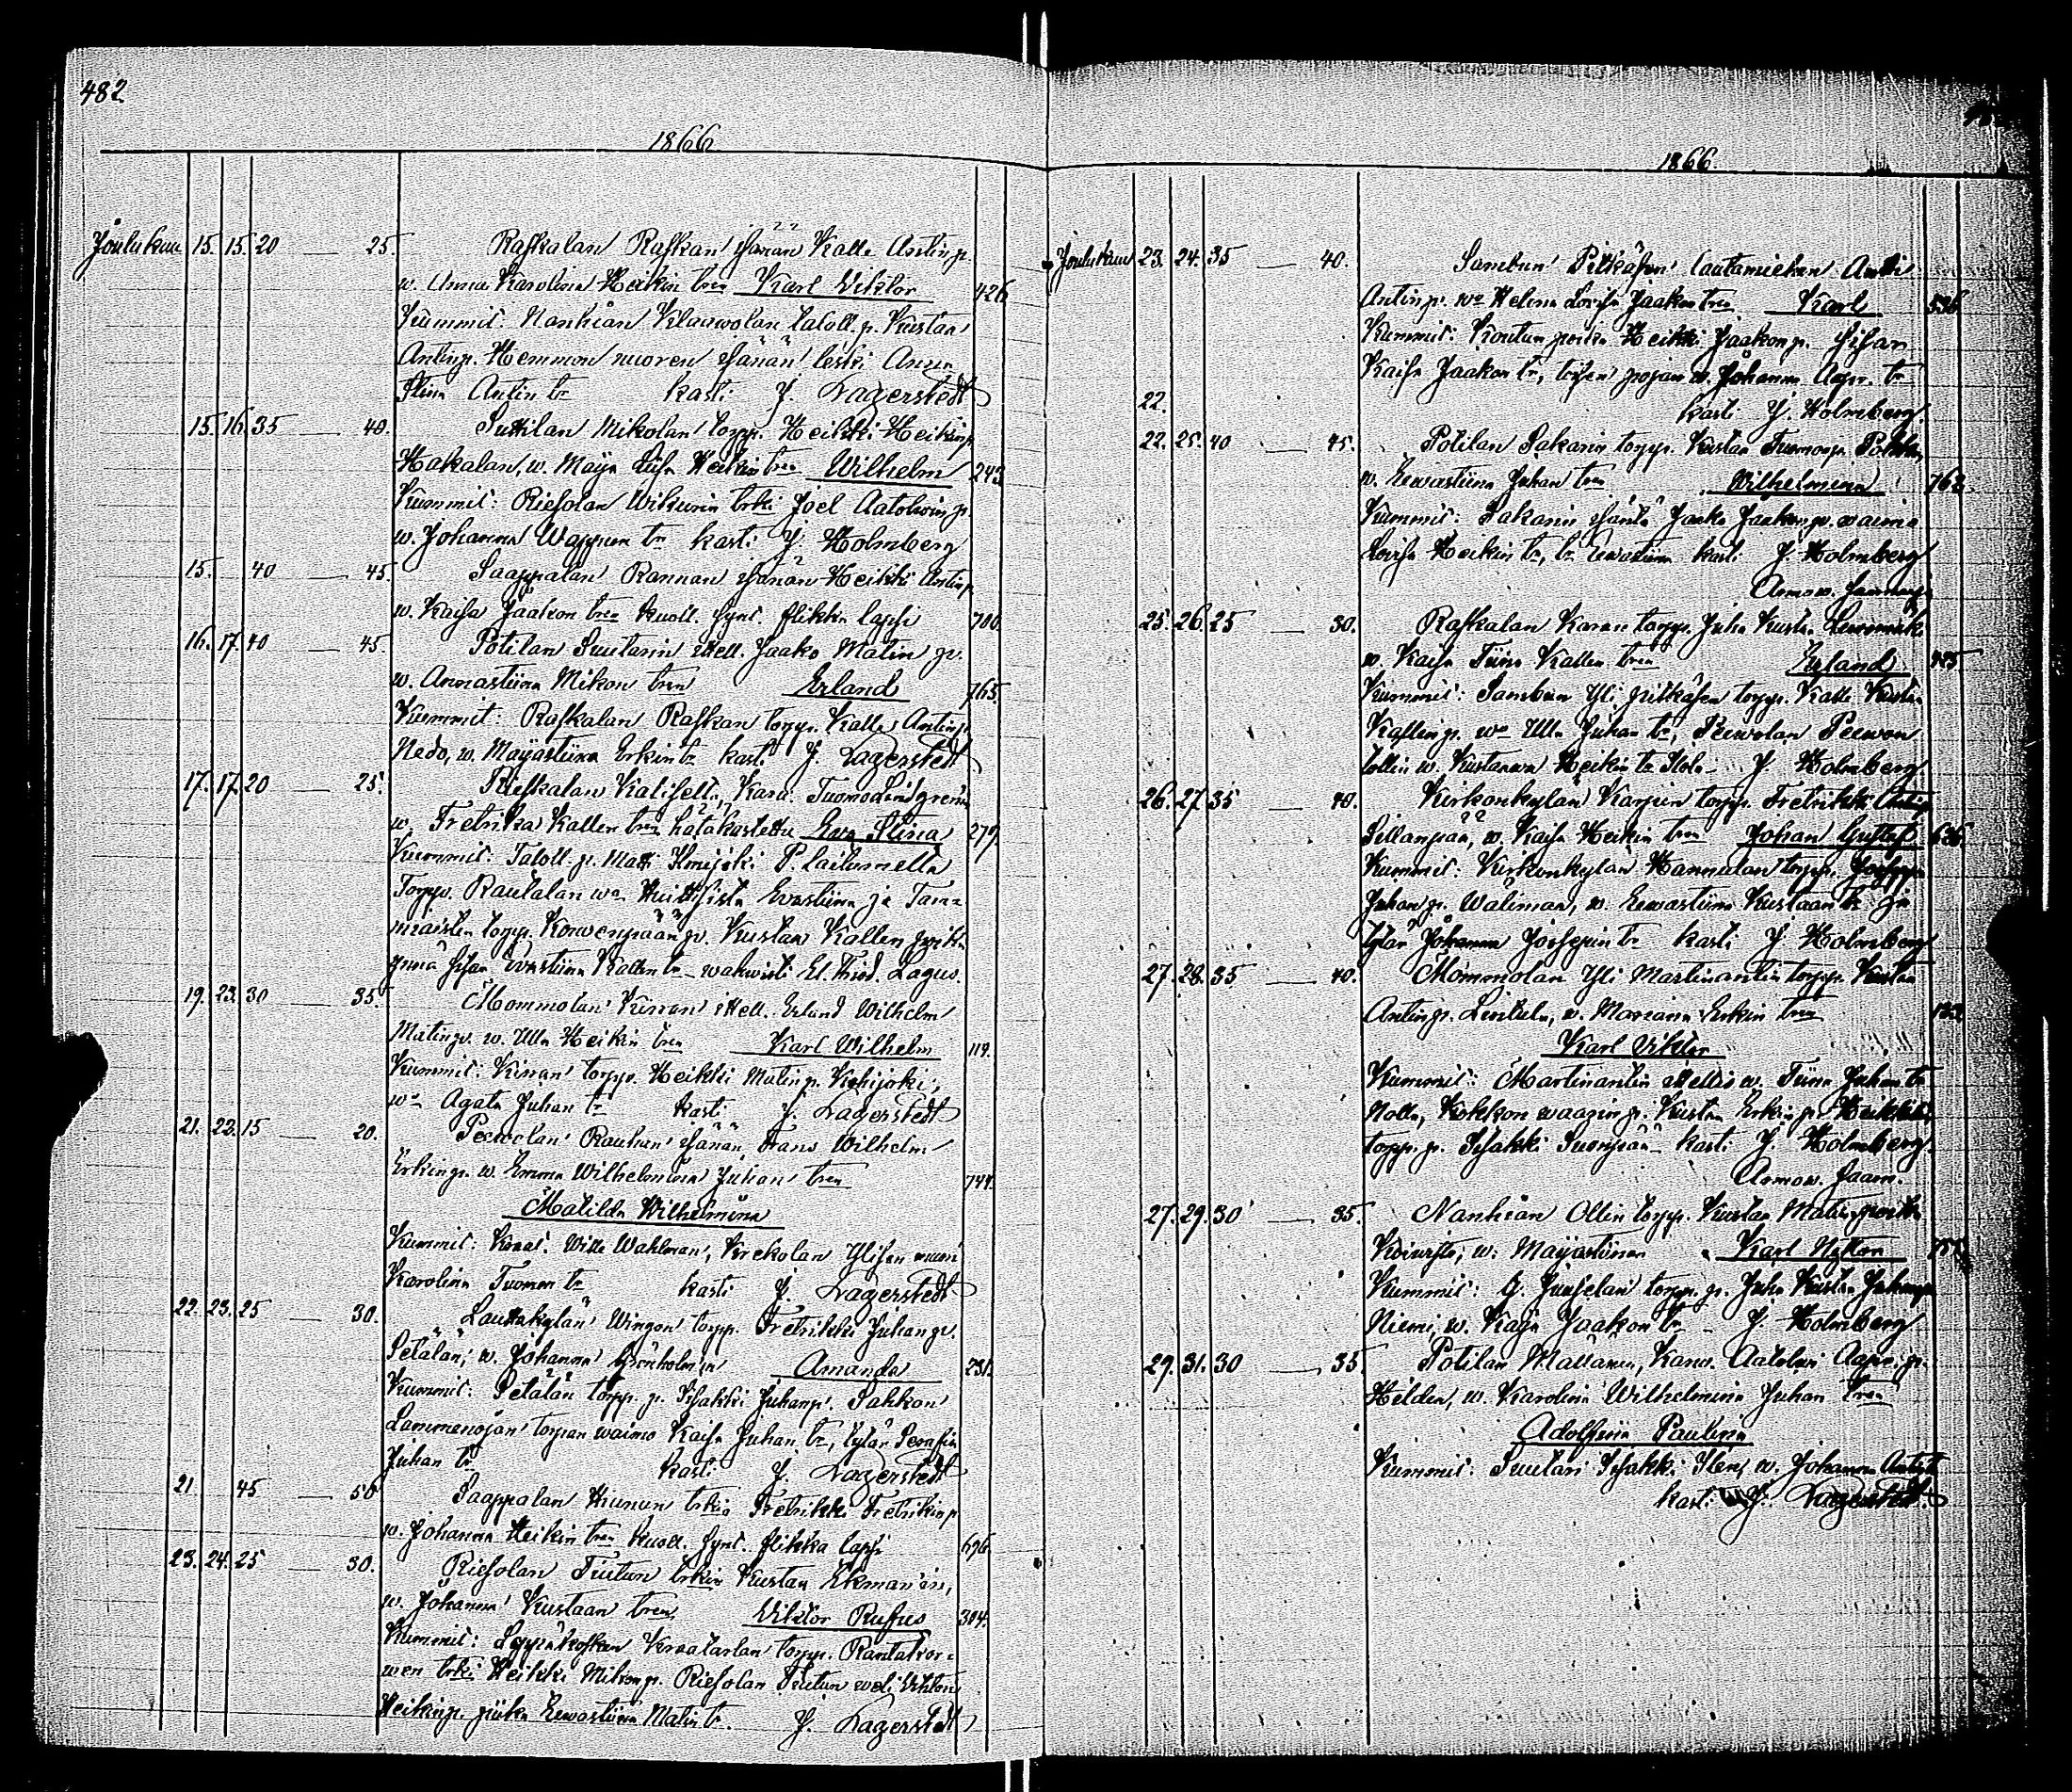 482
1866
Joulukuu 15. 15. 20 — 25. Raskalan Raskan isänän Kalle Antinp.
w. Anna Karolina Heikin tren Karl Viktor 426
Kummit: Nanhian Klaawolan taloll. p. Kustaa
Antinp. Hemmon nuoren isänän leski Anna
Stina Antin tr kasti J. Lagerstedt
15. 16. 35 — 40. Suttilan Mikolan torpp. Heikki Heikinp.
Hakalan, w. Maija Liisa Heikin tren Wilhelm 243
Kummit: Riesolan Wikurin trki Joel Aatolwin p.
w. Johanna Wappun tr kasti J. Holmberg
15. 40 — 45. Saappalan Rannan isänän Heikki Antinp.
w. Kaisa Jaakon tren kuoll. synt. flikka lapsi 700.
16. 17. 40 — 45. Potilan Suutarin itsell. Jaako Matin p.
w. Annastiina Mikon tren Erland 765.
Kummit: Raskalan Raskan torpp. Kalle Antinp.
Nedo, w. Maijastiina Erkin tr kasti J. Lagerstedt
17. 17. 20 — 25. Raskalan Kalisell, Kara. Tuomo Lindgrenin
w. Fretrika Kallen tren hätäkastettu Ewa Stina 277.
Kummit: Taloll. p. Matti Ilmijoki Plaitomella
Torpp. Rautalan wa Huittisista Evastiina ja Tam-
maisten torpp. Korwenpään p. Kustaa Kallen poika
ynnä sisar Evastiina Kallen tr – wahwisti El. Thiod. Lagus.
19. 23. 30 — 35. Mommolan Kirran itsell. Erland Wilhelm
Matinp. w. Ulla Heikin tren Karl Wilhelm 119.
Kummit: Kirran torpp. Heikki Matin p. Kohijoki,
wa Agata Juhan tr kasti J. Lagerstedt
21. 23. 15 — 20. Peewolan Rauhan isänän, Frans Wilhelm
Erkinp. w. Emma Wilhelmina Juhan tren 744.
Matilda Wilhelmina
Kummit: Kraat. Wille Wahlman, Krekolan Ylisen muori
Karolina Tuomon tr kasti J. Lagerstedt
22. 23. 25 — 30. Lauttakylän Wingon torpp. Fretrikki Juhan p.
Petälän, w. Johanna Grönholmin Amanda 231.
Kummit: Petälän torpp. p. Isakki Juhanp. Sakkon
Lammenojan torpan waimo Kaisa Juhan tr, tytär Serafia
Juhan tr kasti J. Lagerstedt
21. 45 — 50 Saappalan Hunun trkin Fretrikki Fretrikinp.
w. Johanna Heikin tren kuoll. synt. flikka lapsi 696.
23. 24. 25 — 30. Riesolan Tuutun trkin Kustaa Ekman'in,
w. Johanna Kustaan tren Viktor Rufus 304.
Kummit: Leppäkosken Kraatarlan torpp. Rantakor-
wen trki Heikki Mikonp. Riesolan Tuutun weli Viktori
Heikinp. piika Eewastiina Matin tr. J. Lagerstedt
1866.
Joulukuu 23. 24. 35 — 40. Sambun Pitkäsen lautamiehen Antti
Antinp. wa Helena Lovisa Jaakon tren Karl 536
Kummit: Koutun poika Heikki Jaakonp. sisar
Kaisa Jaakon tr, toisen pojan w. Johanna Aapr. tr
22. kasti J. Holmberg.
22. 25. 40 — 45. Potilan Sakarin torpp. Kustaa Tuomonp.
w. Eewastiina Juhan tren Wilhelmina 762
Kummit: Sakarin isäntä Jaako Jaakonp. waimo
Lovisa Heikin tr, tr Eewastiina kasti J. Holmberg
25. 26. 25 — 30. Raskalan Karan torpp. Juha Kusta
w. Kaisa Tiina Kallen tren Erland
Kummit: Sambun Yli pitkäsen torpp. Kalle Kusta
wa Ulla Juhan tr, Peewolan Peewon
w. Kustaawa Heikin tr J. Holmberg.
26. 27. 35 — 40. Kirkonkylän Karpin torpp. Fretrikki Antinp.
Sillanpään, w. Kaisa Heikin tren Johan Gustaf
Kummit: Kirkonkylän Hannulan torpp. Joseppi
Juhan p. Wäliman, w. Eewastiina Kustaan tr ja
tytär Johanna Josepin tr kasti J. Holmberg
27. 28. 35 — 40. Mommolan Yli Martinantin torpp. Kustaa
Antinp. Lintula, w. Mariana Erkin tren
Karl Viktor
Kummit: Martinantin itsellis w. Tiina Juhan tr
Nolla, Kokkon waapin p. Kustaa Erkin p.
torpp. p. Isakki Suonpää – kasti J. Holmberg.
27. 29. 30 — 35. Nanhian Ollin torpp. Kustaa Matin poika
Koiwisto, w. Maijastiinan Karl Nestor 757.
Kummit: G. Junselan torpp. p. Juha Kusta Juhanp.
Niemi, w. Kaisa Jaakon tr – J. Holmberg
29. 31. 30 — 35. Potilan Mattanin, Kanw. Aatolwi Aapr. p.
Hilden, w. Karolina Wilhelmina Juhan tren
Adolfiina Paulina
Kummit: Suutari Isakki Sten, w. Johanna
kasti J. Lagerstedt